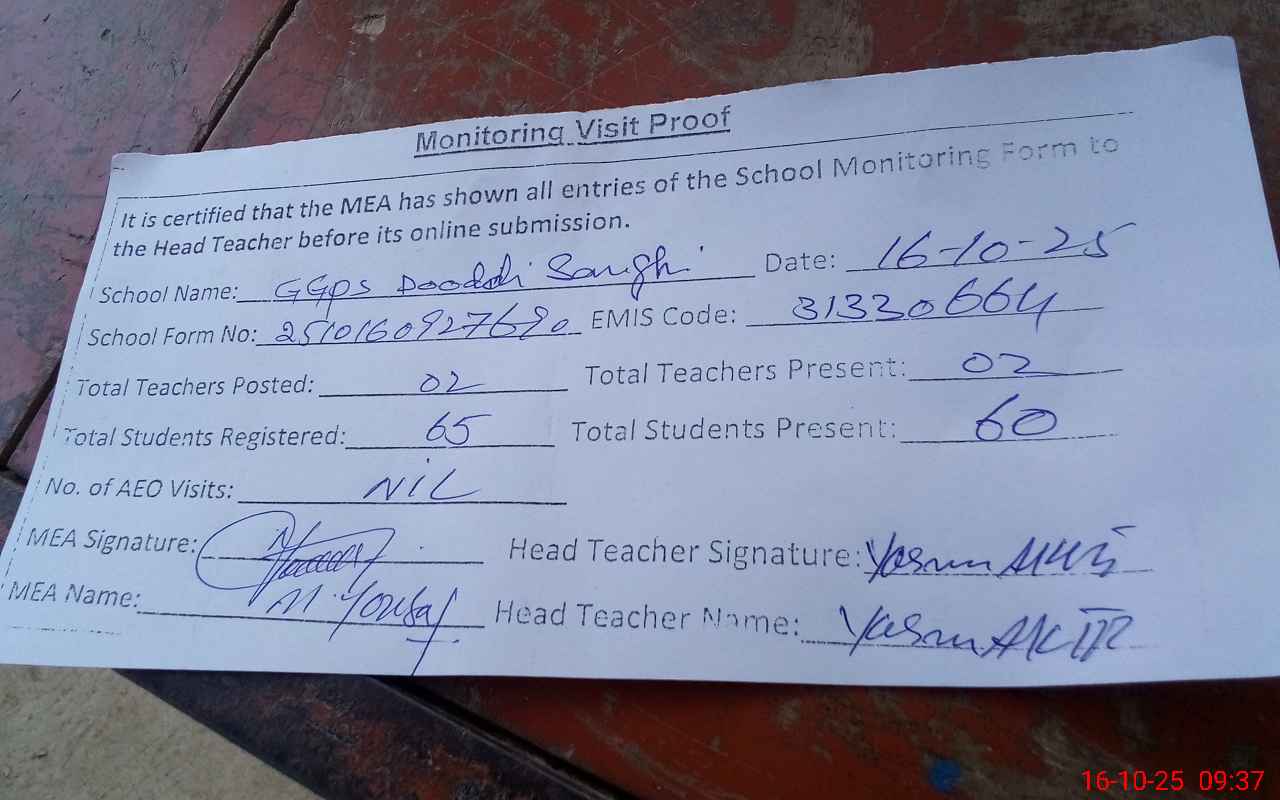 Monitoring Visit Proof
It is certified that the MEA has shown all entries of the School Monitoring Form to
the Head Teacher before its online submission.
School Name: GGPS Daddhi Sanghi Date: 16-10-25
School Form No: 2510160927690 EMIS Code: 31330664
Total Teachers Posted: 02 Total Teachers Present: 02
Total Students Registered: 65 Total Students Present: 60
No. of AEO Visits: NIL
MEA Signature: Head Teacher Signature: Yasmin Akhtar
MEA Name: M. Yousaf Head Teacher Name: Yasmin Akhtar
16-10-25 09:37